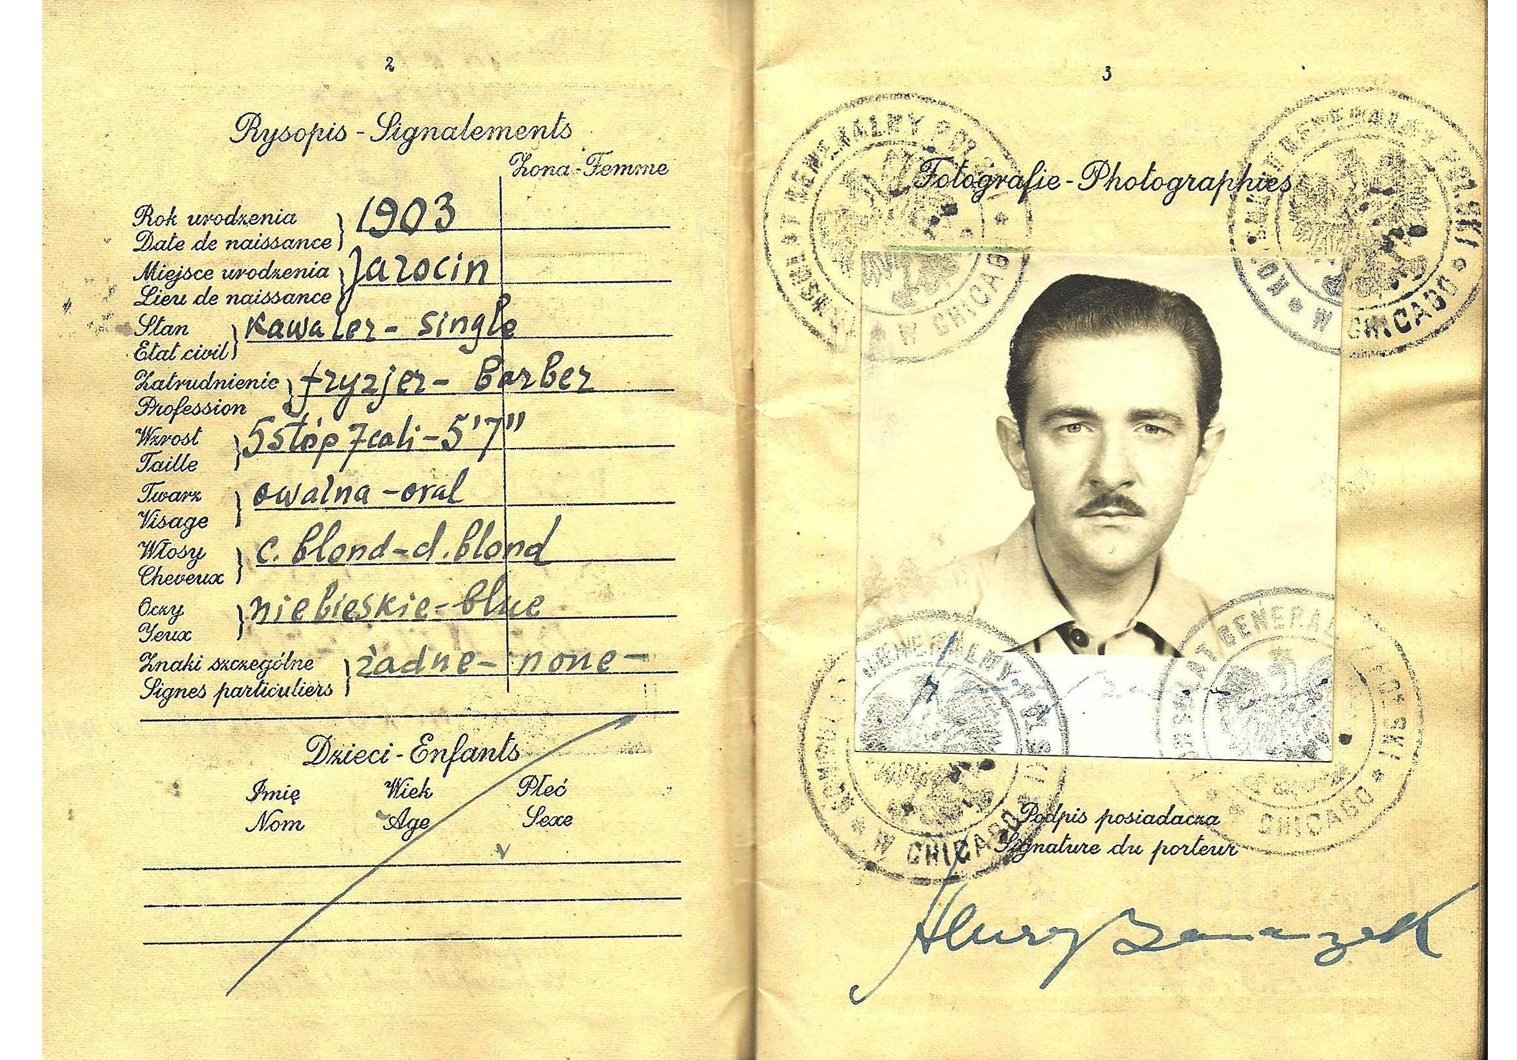 2
Rysopis - Signalements
Żona-Femme
Rok urodzenia
Date de naissance } 1903
Miejsce urodzenia
Lieu de naissance } Jarocin
Stan
Etat civil } kawaler - single
Zatrudnienie
Profession } fryzjer - barber
Wzrost
Taille } 5 stóp 7 cali - 5'7"
Twarz
Visage } owalna - oval
Włosy
Cheveux } c. blond - d. blond
Oczy
Yeux } niebieskie - blue
Znaki szczególne
Signes particuliers } żadne - none -
Dzieci - Enfants
Imię Wiek Płeć
Nom Age Sexe
3
Fotografie - Photographies
KONSULAT GENERALNY POLSKI
W CHICAGO
KONSULAT GENERALNY POLSKI
W CHICAGO
KONSULAT GENERALNY POLSKI
W CHICAGO
KONSULAT GENERALNY POLSKI
W CHICAGO
Podpis posiadacza
Signature du porteur
Henry